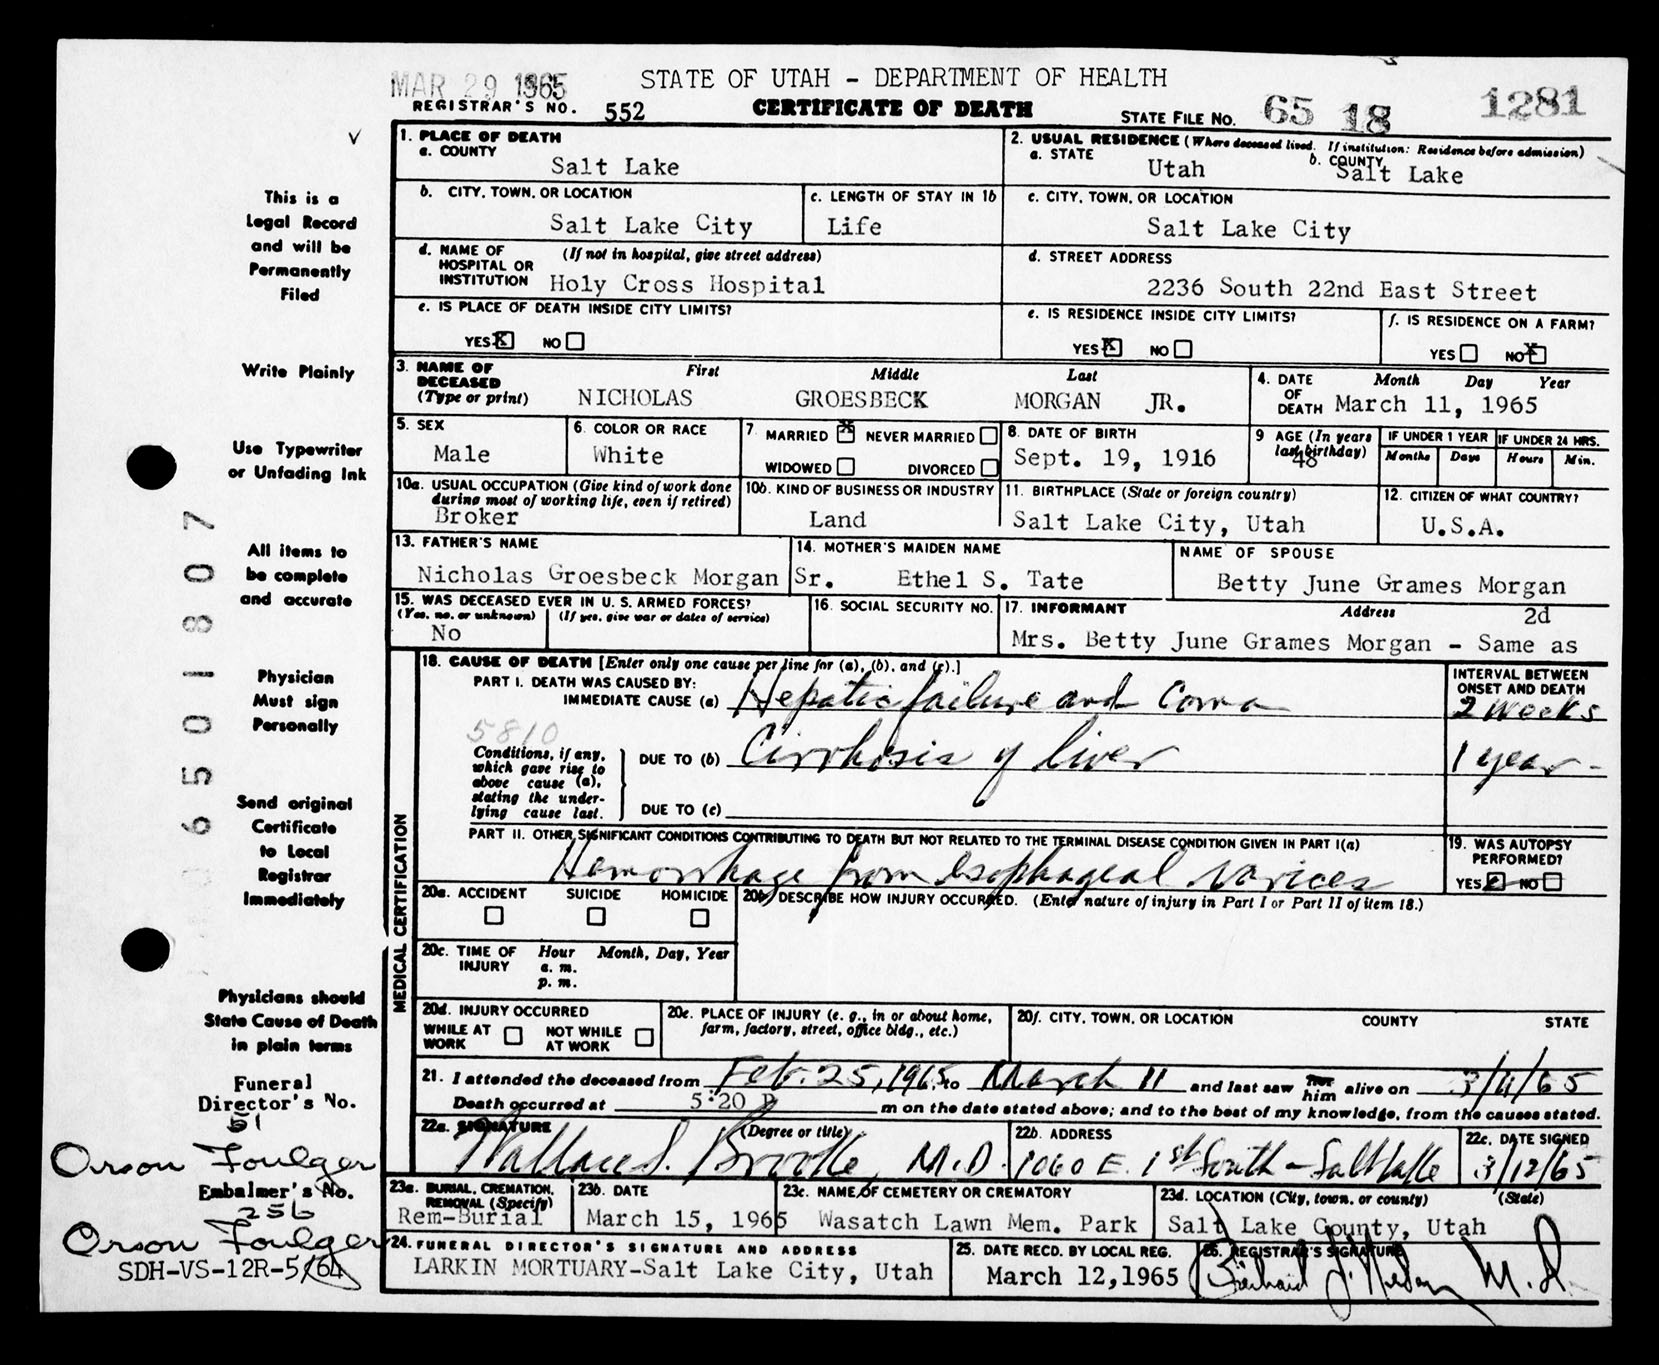 MAR 29 1965
STATE OF UTAH - DEPARTMENT OF HEALTH
REGISTRAR'S NO. 552
CERTIFICATE OF DEATH
STATE FILE NO. 65 18 1281
This is a
Legal Record
and will be
Permanently
Filed
Write Plainly
Use Typewriter
or Unfading Ink
All items to
be complete
and accurate
Physician
Must sign
Personally
Send original
Certificate
to Local
Registrar
Immediately
Physicians should
State Cause of Death
in plain terms
Funeral
Director's No.
51
Orson Foulger
Embalmer's No.
256
Orson Foulger
SDH-VS-12R-5/64
6501807
1. PLACE OF DEATH
a. COUNTY
Salt Lake
2. USUAL RESIDENCE (Where deceased lived. If institution: Residence before admission)
a. STATE
Utah
b. COUNTY
Salt Lake
b. CITY, TOWN, OR LOCATION
Salt Lake City
c. LENGTH OF STAY IN 1b
Life
c. CITY, TOWN, OR LOCATION
Salt Lake City
d. NAME OF HOSPITAL OR INSTITUTION
(If not in hospital, give street address)
Holy Cross Hospital
d. STREET ADDRESS
2236 South 22nd East Street
e. IS PLACE OF DEATH INSIDE CITY LIMITS?
YES X NO
e. IS RESIDENCE INSIDE CITY LIMITS?
YES X NO
f. IS RESIDENCE ON A FARM?
YES NO X
3. NAME OF DECEASED
(Type or print)
First Middle Last
NICHOLAS GROESBECK MORGAN JR.
4. DATE OF DEATH
Month Day Year
March 11, 1965
5. SEX
Male
6. COLOR OR RACE
White
7 MARRIED X NEVER MARRIED
WIDOWED DIVORCED
8. DATE OF BIRTH
Sept. 19, 1916
9 AGE (In years last birthday)
48
IF UNDER 1 YEAR
Months Days
IF UNDER 24 HRS.
Hours Min.
10a. USUAL OCCUPATION (Give kind of work done during most of working life, even if retired)
Broker
10b. KIND OF BUSINESS OR INDUSTRY
Land
11. BIRTHPLACE (State or foreign country)
Salt Lake City, Utah
12. CITIZEN OF WHAT COUNTRY?
U.S.A.
13. FATHER'S NAME
Nicholas Groesbeck Morgan Sr.
14. MOTHER'S MAIDEN NAME
Ethel S. Tate
NAME OF SPOUSE
Betty June Grames Morgan
15. WAS DECEASED EVER IN U. S. ARMED FORCES?
(Yes, no, or unknown) (If yes, give war or dates of service)
No
16. SOCIAL SECURITY NO.
17. INFORMANT Address
2d
Mrs. Betty June Grames Morgan - Same as
MEDICAL CERTIFICATION
18. CAUSE OF DEATH [Enter only one cause per line for (a), (b), and (c).]
PART I. DEATH WAS CAUSED BY:
IMMEDIATE CAUSE (a) Hepatic failure and Coma
INTERVAL BETWEEN ONSET AND DEATH
2 weeks
5810
Conditions, if any, which gave rise to above cause (a), stating the underlying cause last.
DUE TO (b) Cirrhosis of liver
1 year -
DUE TO (c)
PART II. OTHER SIGNIFICANT CONDITIONS CONTRIBUTING TO DEATH BUT NOT RELATED TO THE TERMINAL DISEASE CONDITION GIVEN IN PART I(a)
Hemorrhage from esophageal varices
19. WAS AUTOPSY PERFORMED?
YES NO
20a. ACCIDENT SUICIDE HOMICIDE
20b. DESCRIBE HOW INJURY OCCURRED. (Enter nature of injury in Part I or Part II of item 18.)
20c. TIME OF INJURY
Hour Month, Day, Year
a. m.
p. m.
20d. INJURY OCCURRED
WHILE AT WORK NOT WHILE AT WORK
20e. PLACE OF INJURY (e. g., in or about home, farm, factory, street, office bldg., etc.)
20f. CITY, TOWN, OR LOCATION COUNTY STATE
21. I attended the deceased from Feb. 25, 1965, to March 11 and last saw her him alive on 3/11/65
Death occurred at 5:20 P m on the date stated above; and to the best of my knowledge, from the causes stated.
22a. SIGNATURE (Degree or title)
Wallace S. Brooke, M.D.
22b. ADDRESS
1060 E. 1st South - Salt Lake
22c. DATE SIGNED
3/12/65
23a. BURIAL, CREMATION, REMOVAL (Specify)
Rem-Burial
23b. DATE
March 15, 1965
23c. NAME OF CEMETERY OR CREMATORY
Wasatch Lawn Mem. Park
23d. LOCATION (City, town, or county) (State)
Salt Lake County, Utah
24. FUNERAL DIRECTOR'S SIGNATURE AND ADDRESS
LARKIN MORTUARY-Salt Lake City, Utah
25. DATE RECD. BY LOCAL REG.
March 12, 1965
26. REGISTRAR'S SIGNATURE
M.D.